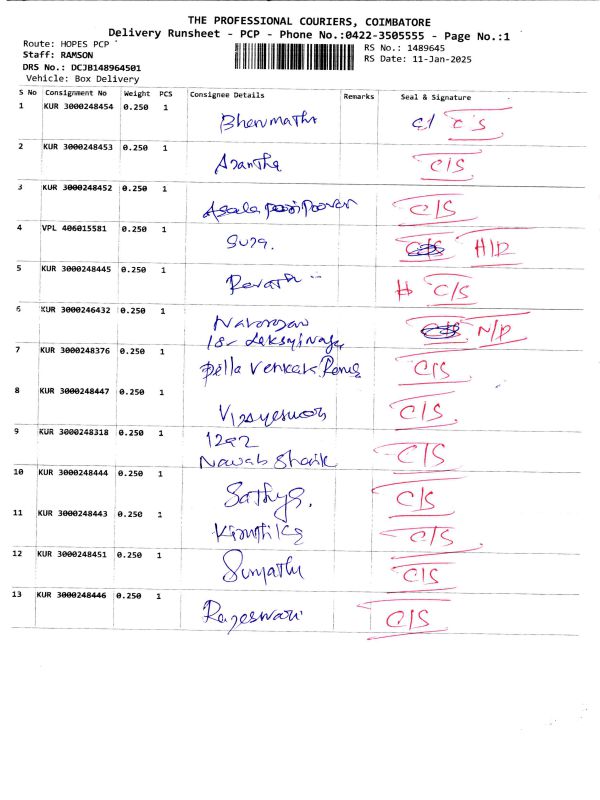 THE PROFESSIONAL COURIERS, COIMBATORE
Delivery Runsheet - PCP - Phone No.:0422-3505555 - Page No.:1
Route: HOPES PCP
RS No.: 1489645
Staff: RAMSON
RS Date: 11-Jan-2025
DRS No.: DCJB148964501
Vehicle: Box Delivery
S No Consignment No Weight PCS Consignee Details Remarks Seal & Signature
1 KUR 3000248454 0.250 1 C/S
2 KUR 3000248453 0.250 1 Asantha C/S
3 KUR 3000248452 0.250 1 C/S
4 VPL 406015581 0.250 1 C/S
5 KUR 3000248445 0.250 1 C/S
6 KUR 3000246432 0.250 1 N/D
18-
7 KUR 3000248376 0.250 1 Venkat C/S
8 KUR 3000248447 0.250 1 C/S
9 KUR 3000248318 0.250 1
Nawab Sharik C/S
10 KUR 3000248444 0.250 1 Sathya. C/S
11 KUR 3000248443 0.250 1 Kiruthika C/S
12 KUR 3000248451 0.250 1 Sumathi C/S
13 KUR 3000248446 0.250 1 Rajeswari C/S